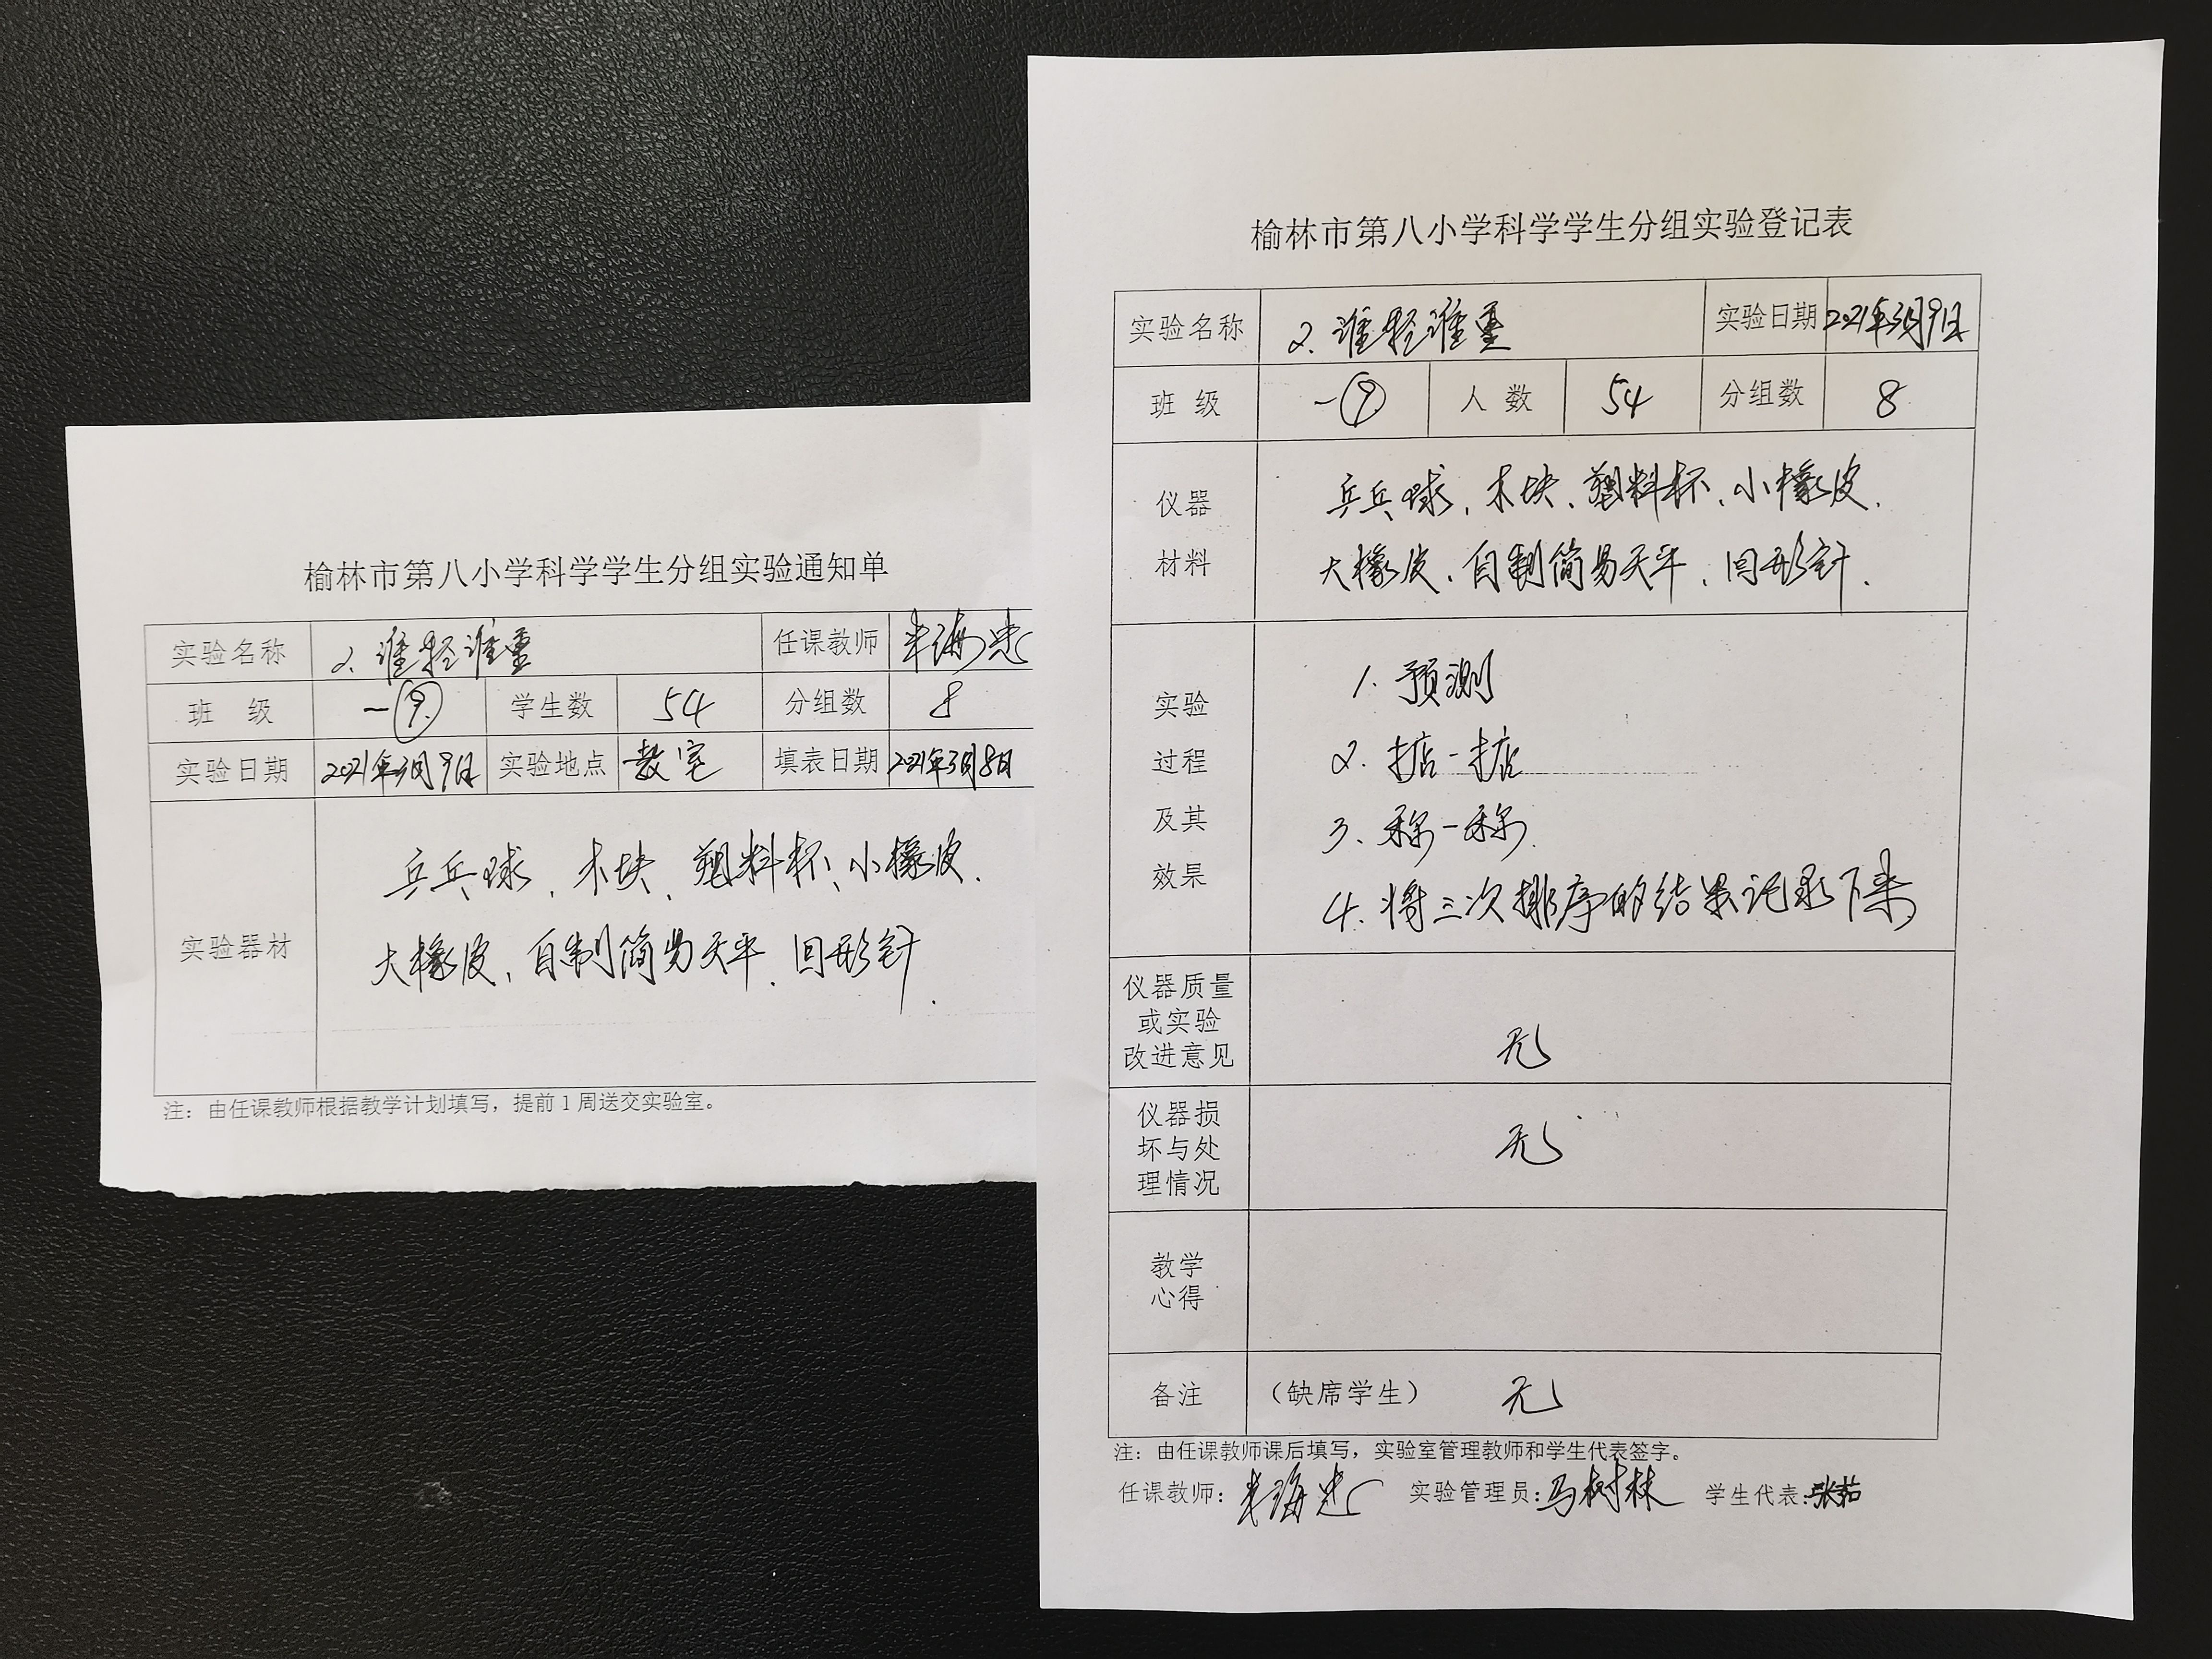 榆林市第八小学科学学生分组实验通知单
实验名称 2. 谁轻谁重 任课教师 海忠
班 级 一⑨ 学生数 54 分组数 8
实验日期 2021年3月9日 实验地点 教室 填表日期 2021年3月8日
实验器材
乒乓球、木块、塑料杯、小橡皮、
大橡皮、自制简易天平、回形针.
注：由任课教师根据教学计划填写，提前1周送交实验室。
榆林市第八小学科学学生分组实验登记表
实验名称 2. 谁轻谁重 实验日期 2021年3月9日
班 级 一⑨ 人 数 54 分组数 8
仪器
材料
乒乓球、木块、塑料杯、小橡皮、
大橡皮、自制简易天平、回形针.
实验
过程
及其
效果
1. 预测
2. 掂一掂
3、称一称
4. 将三次排序的结果记录下来
仪器质量
或实验
改进意见
无
仪器损
坏与处
理情况
无
教学
心得
备注 （缺席学生） 无
注：由任课教师课后填写，实验室管理教师和学生代表签字。
任课教师： 海忠 实验管理员：马树林 学生代表：张